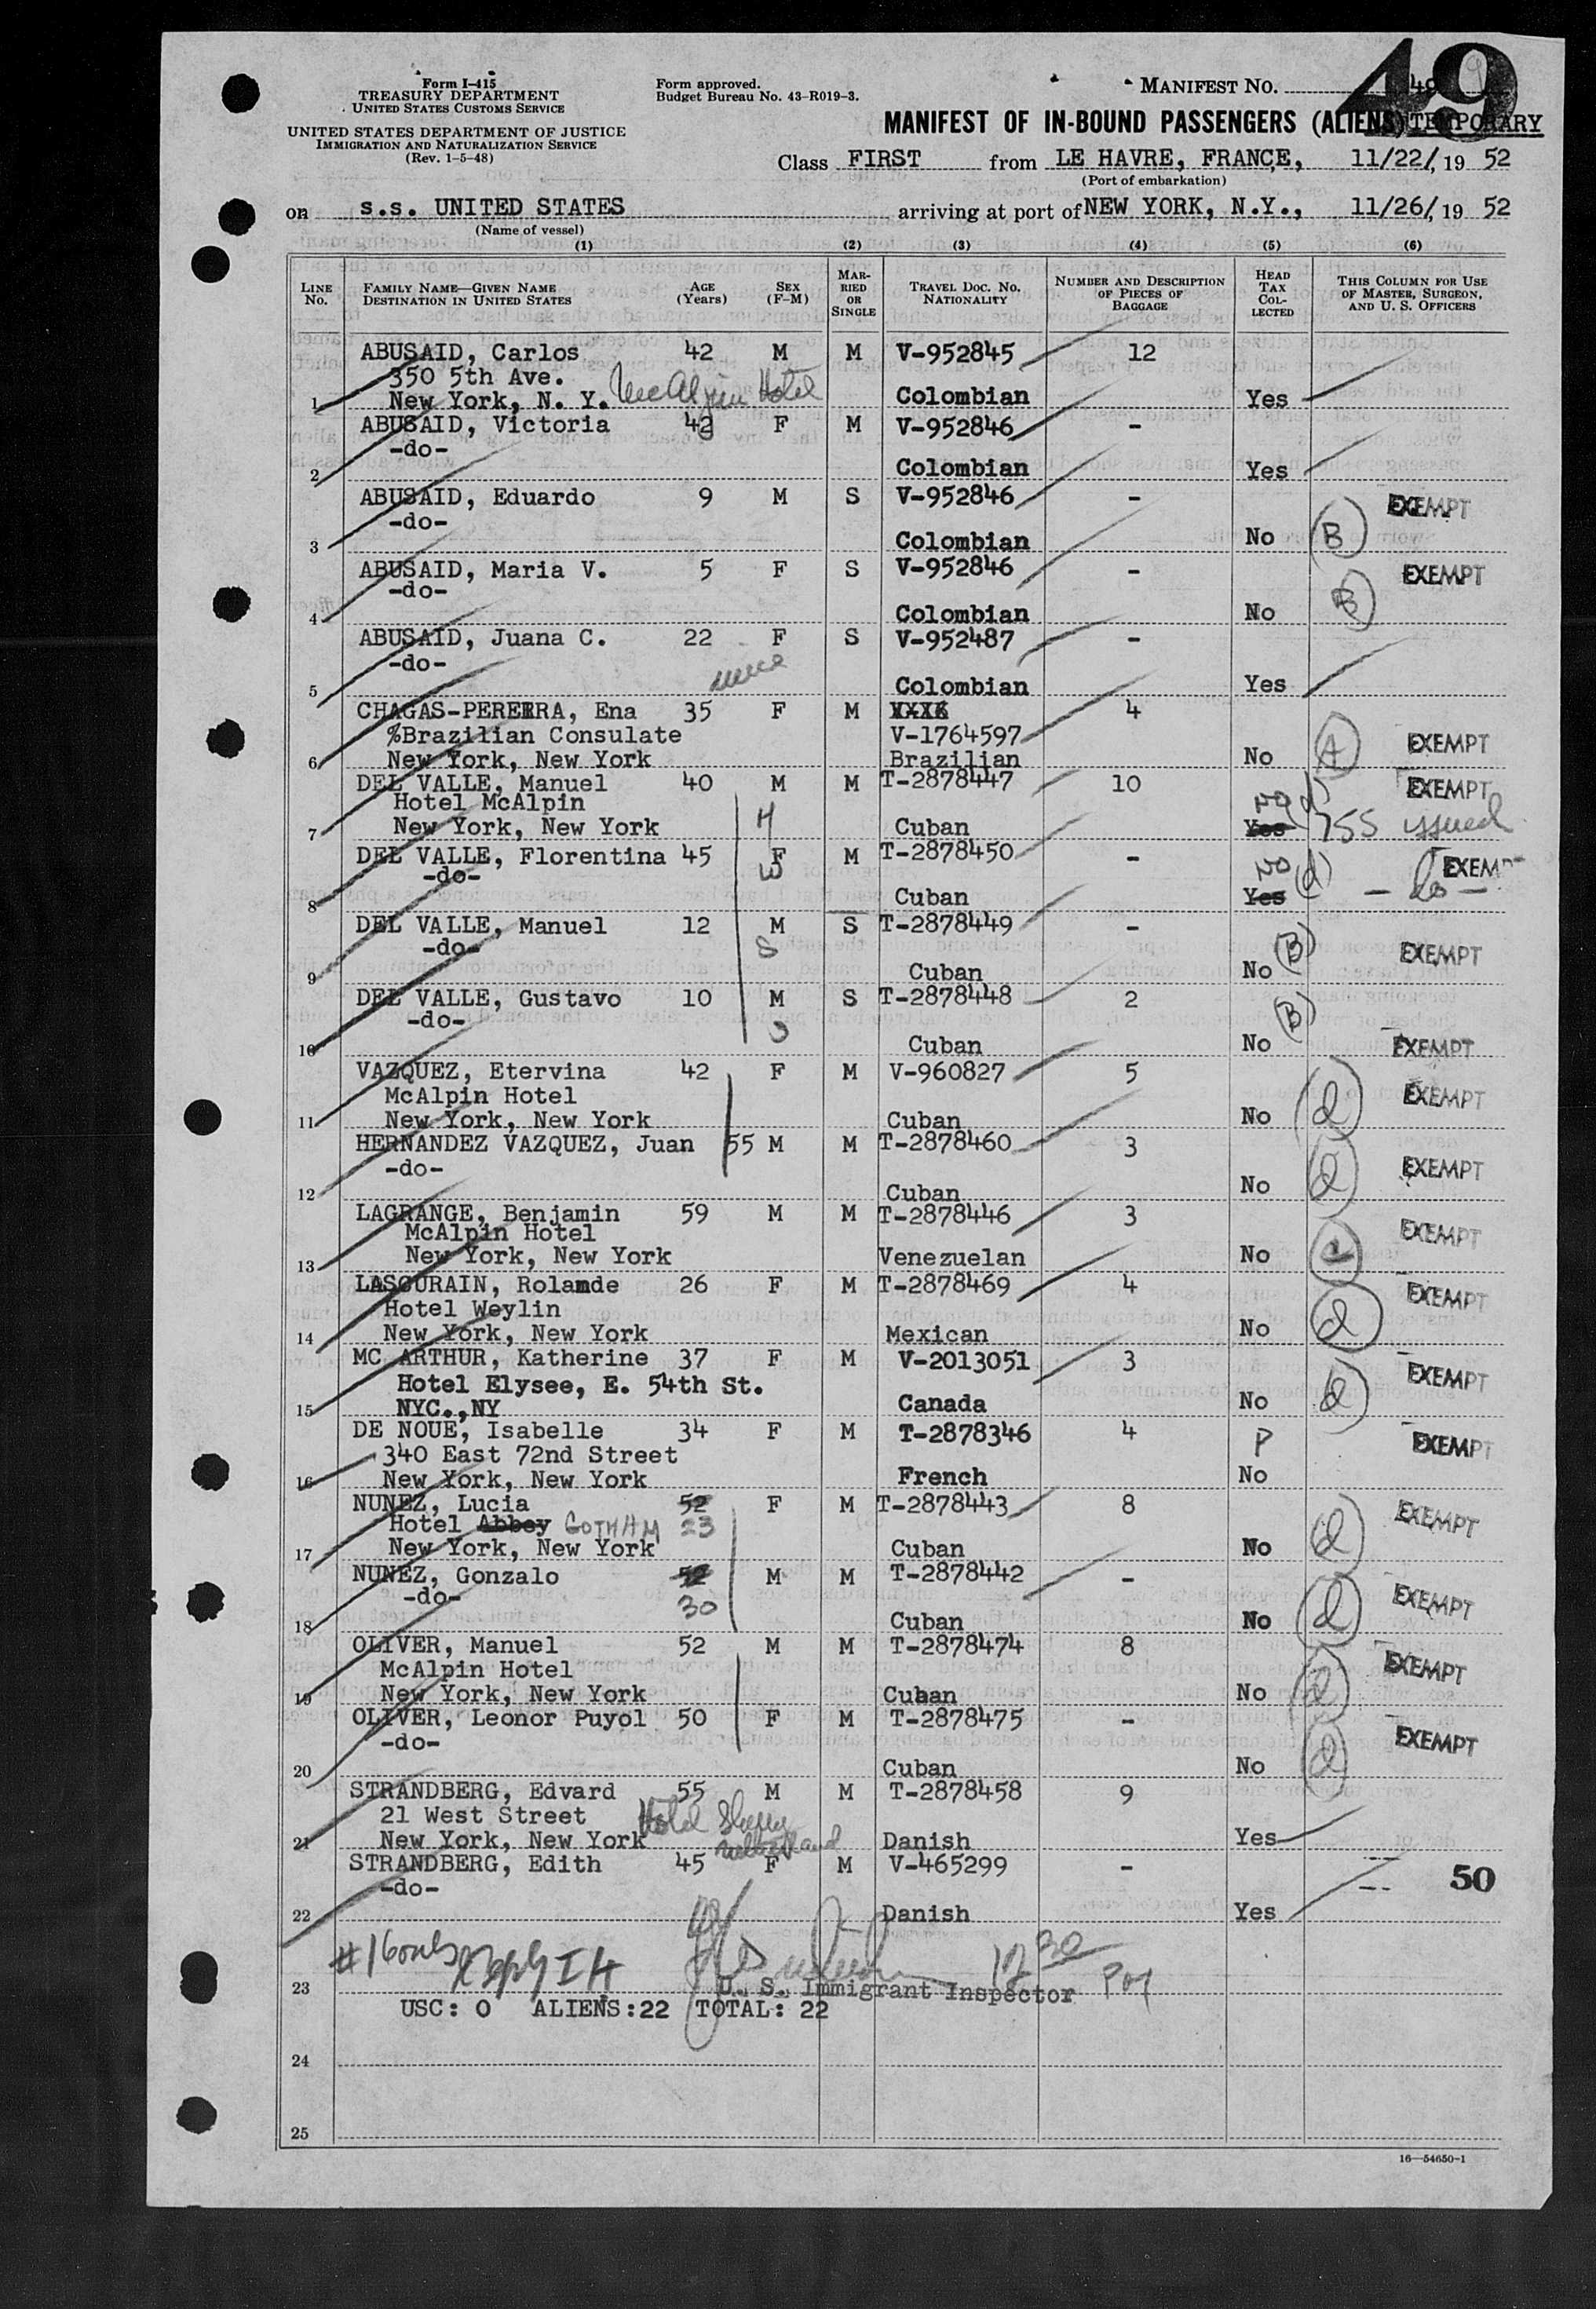 Form I-415
TREASURY DEPARTMENT
UNITED STATES CUSTOMS SERVICE
UNITED STATES DEPARTMENT OF JUSTICE
IMMIGRATION AND NATURALIZATION SERVICE
(Rev. 1-5-48)
Form approved.
Budget Bureau No. 43-R019-3.
MANIFEST NO. 49
49
MANIFEST OF IN-BOUND PASSENGERS (ALIENS) TEMPORARY
Class FIRST from LE HAVRE, FRANCE, 11/22/, 19 52
(Port of embarkation)
on s.s. UNITED STATES arriving at port of NEW YORK, N.Y., 11/26/, 19 52
(Name of vessel)
(1) (2) (3) (4) (5) (6)
LINE No. FAMILY NAME—GIVEN NAME DESTINATION IN UNITED STATES AGE (Years) SEX (F-M) MARRIED OR SINGLE TRAVEL DOC. NO. NATIONALITY NUMBER AND DESCRIPTION OF PIECES OF BAGGAGE HEAD TAX COLLECTED THIS COLUMN FOR USE OF MASTER, SURGEON, AND U. S. OFFICERS
ABUSAID, Carlos 42 M M V-952845 12
350 5th Ave.
1 New York, N. Y. McAlpin Hotel Colombian Yes
ABUSAID, Victoria 42 F M V-952846 -
-do-
2 Colombian Yes
ABUSAID, Eduardo 9 M S V-952846 - EXEMPT
-do-
3 Colombian No B
ABUSAID, Maria V. 5 F S V-952846 - EXEMPT
-do-
4 Colombian No B
ABUSAID, Juana C. 22 F S V-952487 -
-do- niece
5 Colombian Yes
CHAGAS-PEREIRA, Ena 35 F M 4
%Brazilian Consulate V-1764597
6 New York, New York Brazilian No A EXEMPT
DEL VALLE, Manuel 40 M M T-2878447 10 EXEMPT
Hotel McAlpin H No (d)
7 New York, New York Cuban Yes 755 issued
DEL VALLE, Florentina 45 F M T-2878450 - No (d) EXEMPT
-do- W
8 Cuban Yes - do -
DEL VALLE, Manuel 12 M S T-2878449 -
-do- S (B) EXEMPT
9 Cuban No
DEL VALLE, Gustavo 10 M S T-2878448 2
-do- S (B)
10 Cuban No EXEMPT
VAZQUEZ, Etervina 42 F M V-960827 5
McAlpin Hotel EXEMPT
11 New York, New York Cuban No d
HERNANDEZ VAZQUEZ, Juan 55 M M T-2878460 3
-do- EXEMPT
12 Cuban No d
LAGRANGE, Benjamin 59 M M T-2878446 3
McAlpin Hotel EXEMPT
13 New York, New York Venezuelan No
LASCURAIN, Rolande 26 F M T-2878469 4
Hotel Weylin EXEMPT
14 New York, New York Mexican No d
MC ARTHUR, Katherine 37 F M V-2013051 3
Hotel Elysee, E. 54th St. EXEMPT
15 NYC.,NY Canada No d
DE NOUE, Isabelle 34 F M T-2878346 4
340 East 72nd Street P EXEMPT
16 New York, New York French No
NUNEZ, Lucia 52 F M T-2878443 8
Hotel Abbey GOTHAM 23 EXEMPT
17 New York, New York Cuban No d
NUNEZ, Gonzalo 52 M M T-2878442 -
-do- 30 EXEMPT
18 Cuban No d
OLIVER, Manuel 52 M M T-2878474 8
McAlpin Hotel EXEMPT
19 New York, New York Cuban No d
OLIVER, Leonor Puyol 50 F M T-2878475 -
-do- EXEMPT
20 Cuban No d
STRANDBERG, Edvard 55 M M T-2878458 9
21 West Street Hotel Sherry
21 New York, New York Netherland Danish Yes
STRANDBERG, Edith 45 F M V-465299 - 50
-do-
22 Danish Yes
23 U. S. Immigrant Inspector
USC: 0 ALIENS: 22 TOTAL: 22
24
25
16—54650-1